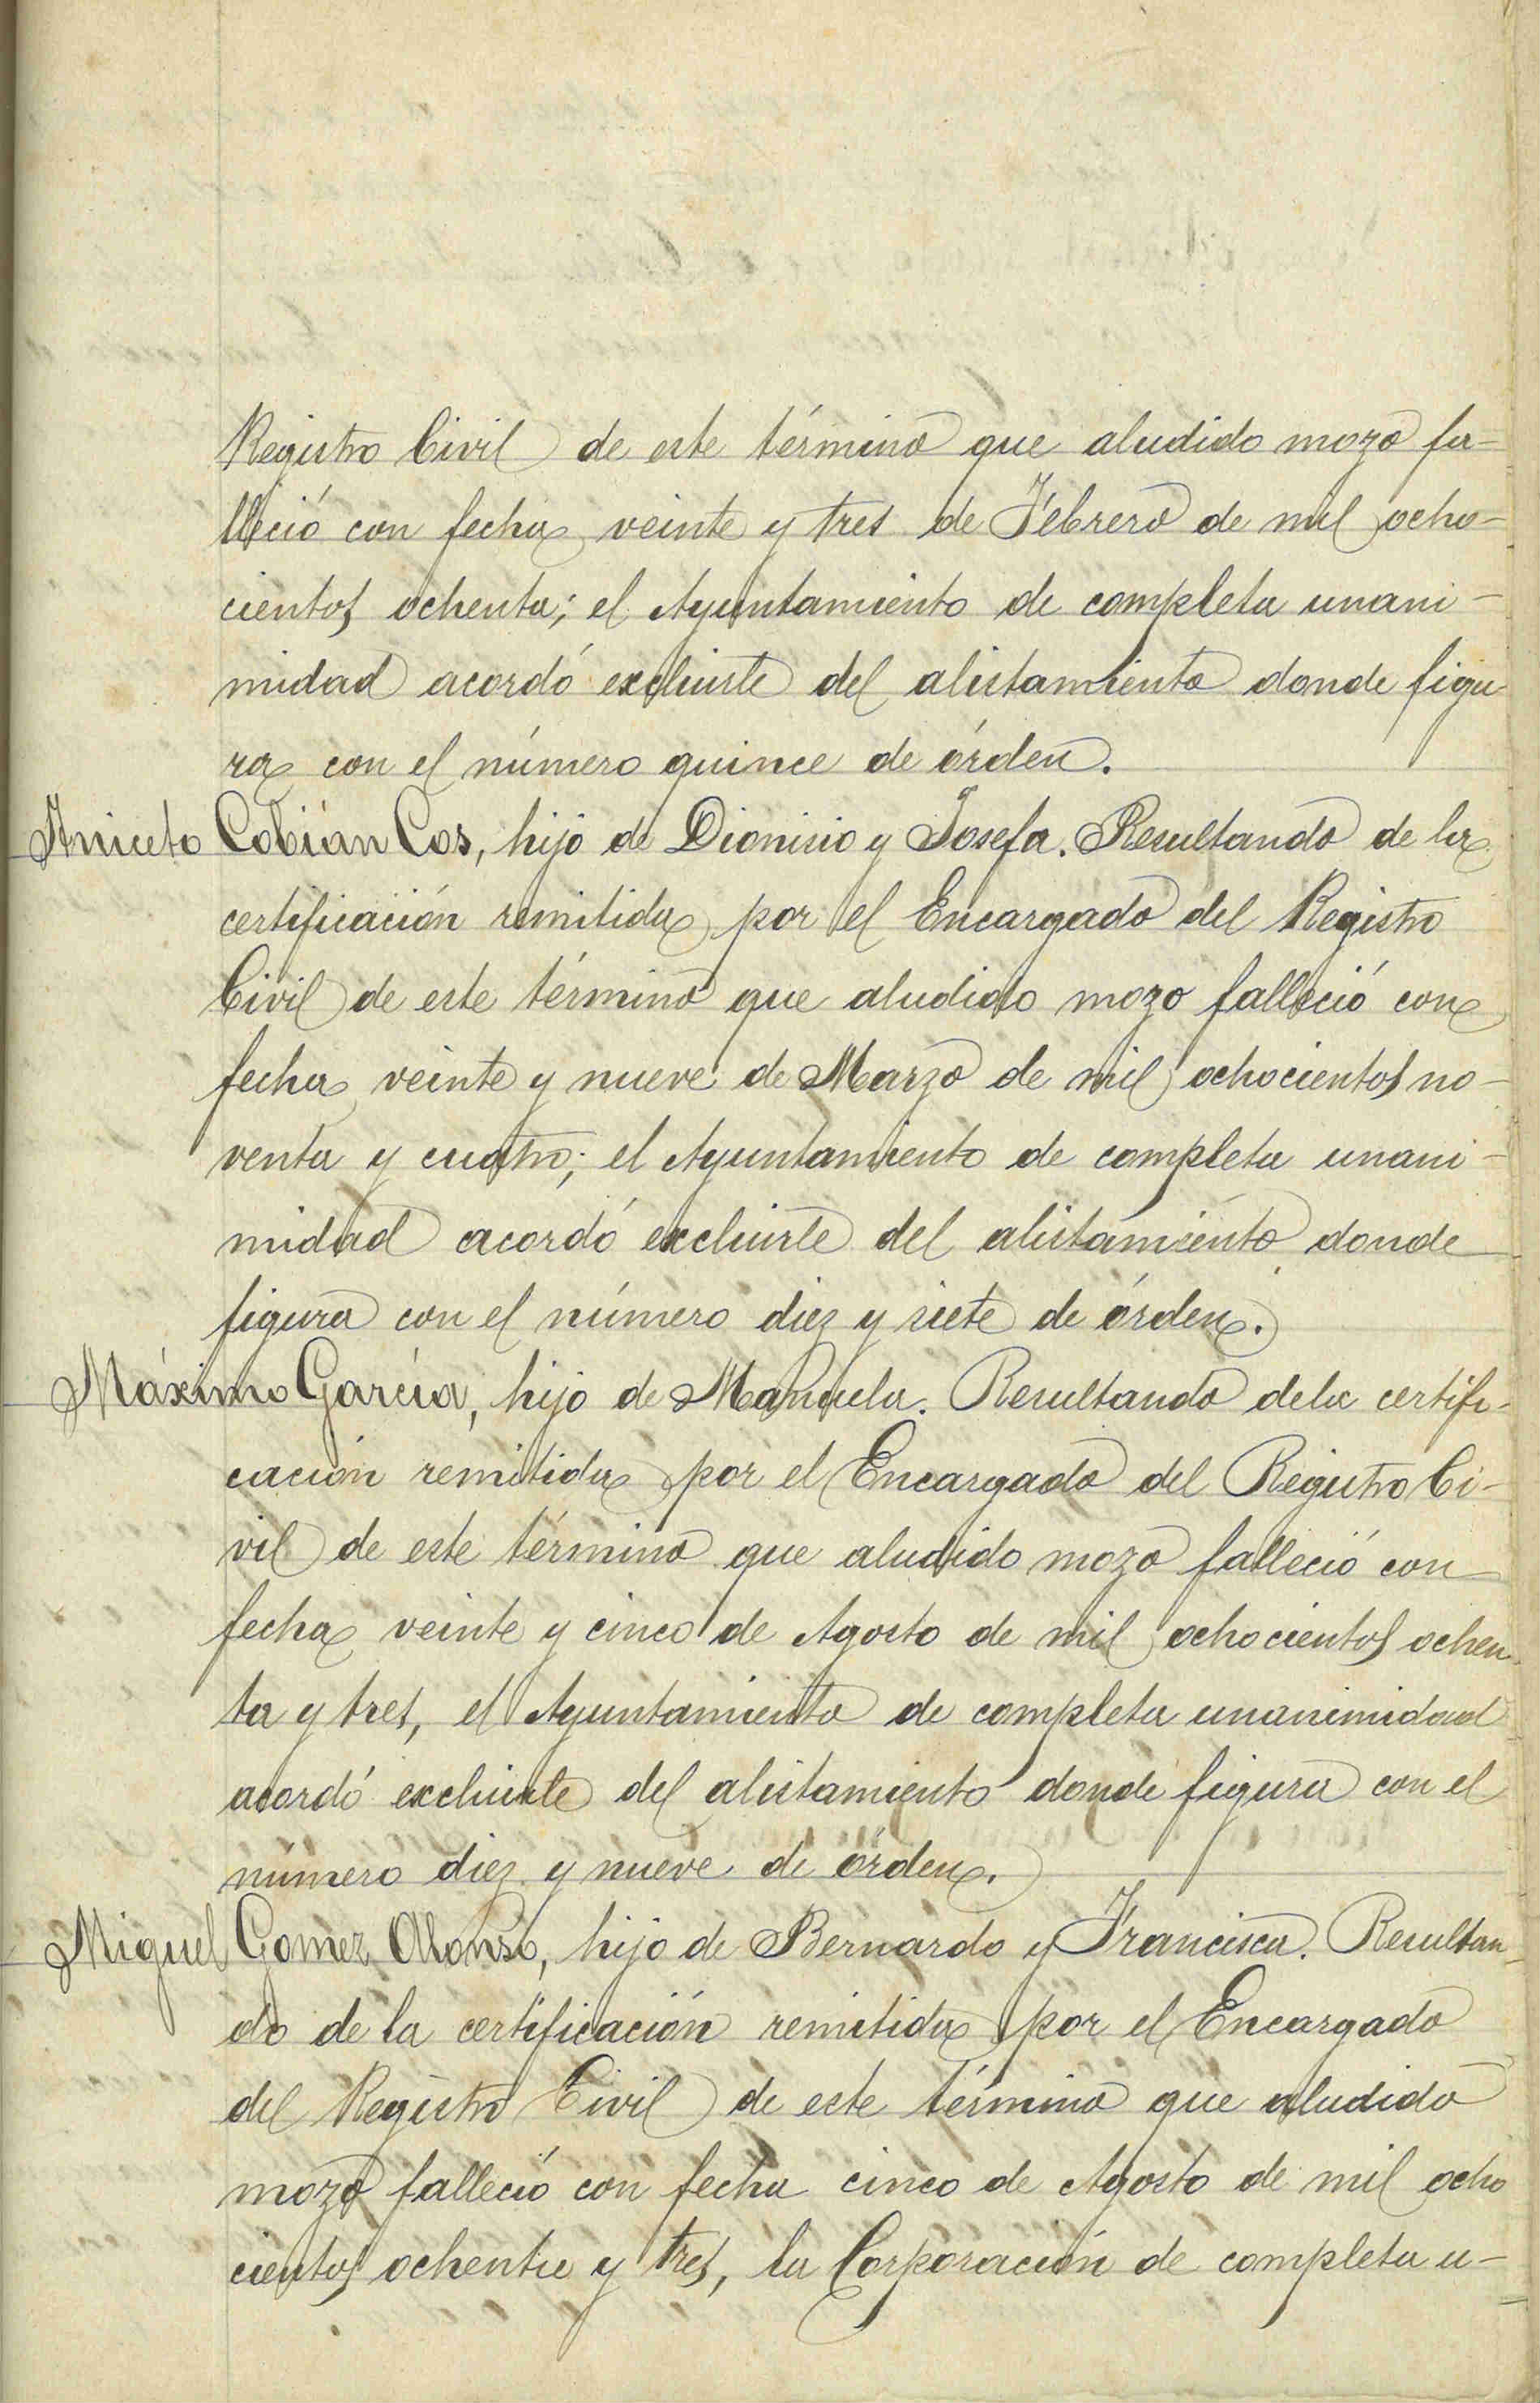 Registro Civil de este término que aludido mozo fa-
lleció con fecha veinte y tres de Febrero de mil ocho-
cientos ochenta; el Ayuntamiento de completa unani-
midad acordó excluirle del alistamiento donde figu-
ra con el número quince de órden.
Aniceto Cobián Cos, hijo de Dionisio y Josefa. Resultando de la
certificación remitida por el Encargado del Registro
Civil de este término que aludido mozo falleció con
fecha veinte y nueve de Marzo de mil ochocientos no-
venta y cuatro; el Ayuntamiento de completa unani-
midad acordó excluirle del alistamiento donde
figura con el número diez y siete de órden.
Máximo García, hijo de Manuela. Resultando de la certifi-
cación remitida por el Encargado del Registro Ci-
vil de este término que aludido mozo falleció con
fecha veinte y cinco de Agosto de mil ochocientos ochen-
ta y tres, el Ayuntamiento de completa unanimidad
acordó excluirle del alistamiento donde figura con el
número diez y nueve de órden.
Miguel Gomez Alonso, hijo de Bernardo y Francisca. Resultan-
do de la certificación remitida por el Encargado
del Registro Civil de este término que aludido
mozo falleció con fecha cinco de Agosto de mil ocho
cientos ochenta y tres, la Corporación de completa u-